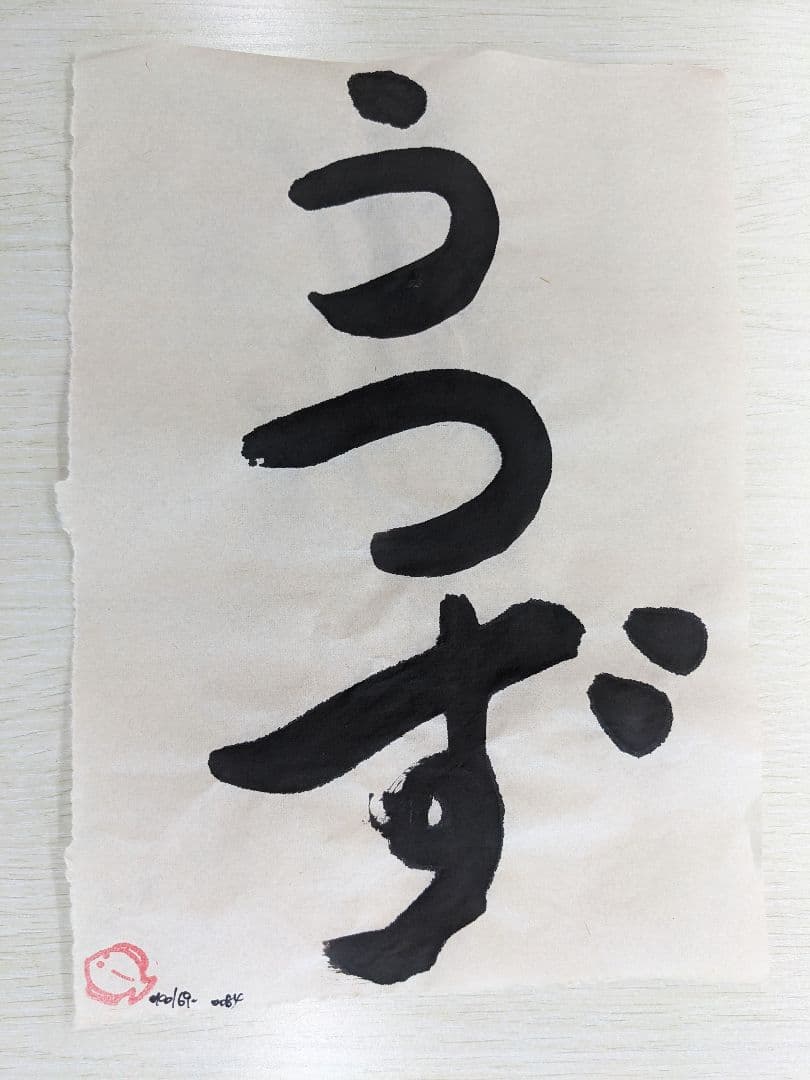 うつず